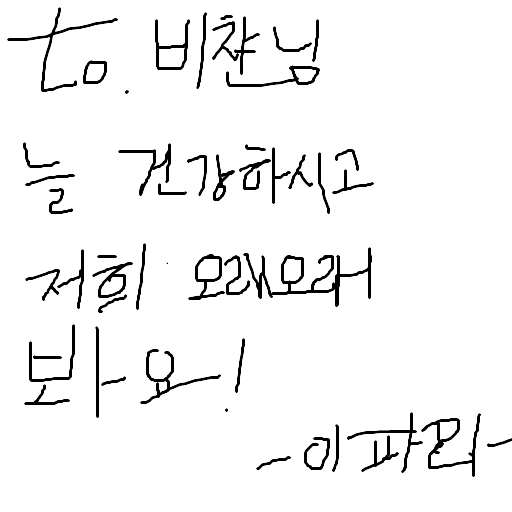 to. 비챤님
늘 건강하시고
저희 오래오래
봐요!
-이파리-